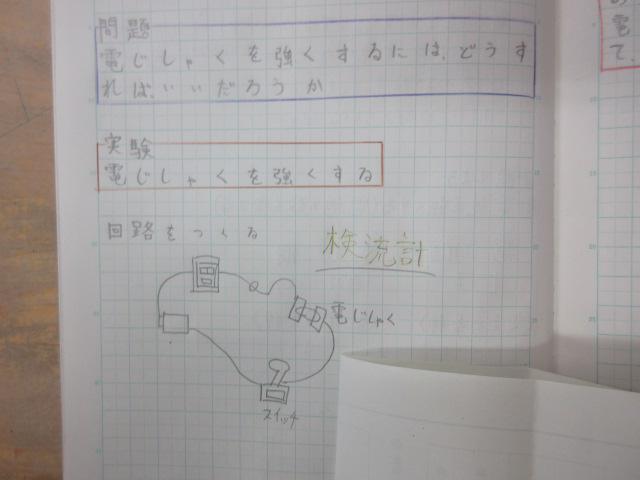 問題
電じしゃくを強くするには、どうす
ればいいだろうか
実験
電じしゃくを強くする
回路をつくる
検流計
電じしゃく
スイッチ
電
て、